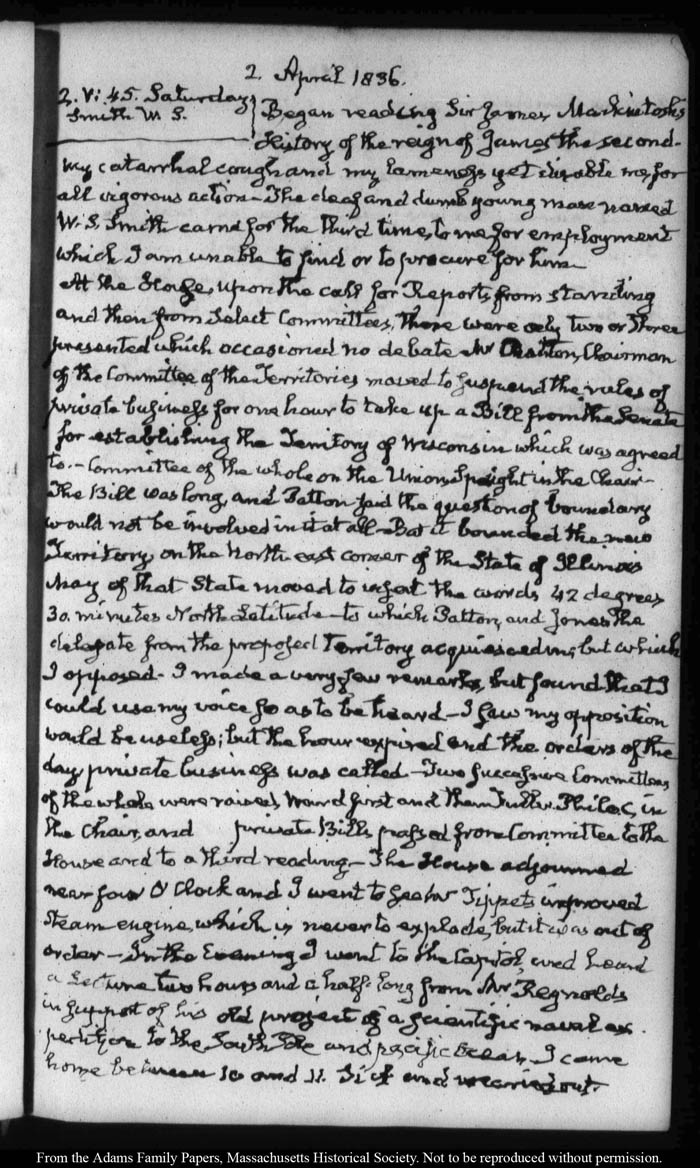 2. April 1836.
2. V: 45. Saturday
Smith W. S.
Began reading Sir James Mackintosh's
History of the reign of James the second.
My catarrhal cough and my lameness yet disable me, for
all vigorous action — The deaf and dumb young man named
W. S. Smith came for the third time, to me, for employment
which I am unable to find or to procure for him —
At the House, upon the call for Reports, from standing
and then from Select Committees, there were only two or three
presented which occasioned no debate — Mr Patton, Chairman
of the Committee of the Territories moved to suspend the rules of
private business for one hour to take up a Bill from the Senate
for establishing the Territory of Wisconsin which was agreed
to. — Committee of the whole on the Union, Speight in the Chair —
The Bill was long, and Patton said the question of boundary
would not be involved in it at all — But it bounded the new
Territory, on the North east corner of the State of Illinois
May of that State moved to insert the words 42 degrees
30. minutes North Latitude — to which Patton, and Jones the
delegate from the proposed Territory acquiesced in, but which
I opposed — I made a very few remarks, but found that I
could use my voice so as to be heard — I saw my opposition
would be useless; but the hour expired and the orders of the
day, private business was called — Two successive Committees
of the whole were raised, Ward first and then Fuller Philo C, in
the Chair, and private Bills passed from Committee to the
House and to a third reading. — The House adjourned
near four O'Clock and I went to see Mr Tippets improved
Steam engine, which is never to explode, but it was out of
order — In the Evening I went to the Capitol, and heard
a Lecture two hours and a half long from Mr Reynolds
in support of his old project of a scientific naval ex-
pedition to the South Pole and pacific Ocean. I came
home between 10 and 11. Sick and wearied out.
From the Adams Family Papers, Massachusetts Historical Society. Not to be reproduced without permission.